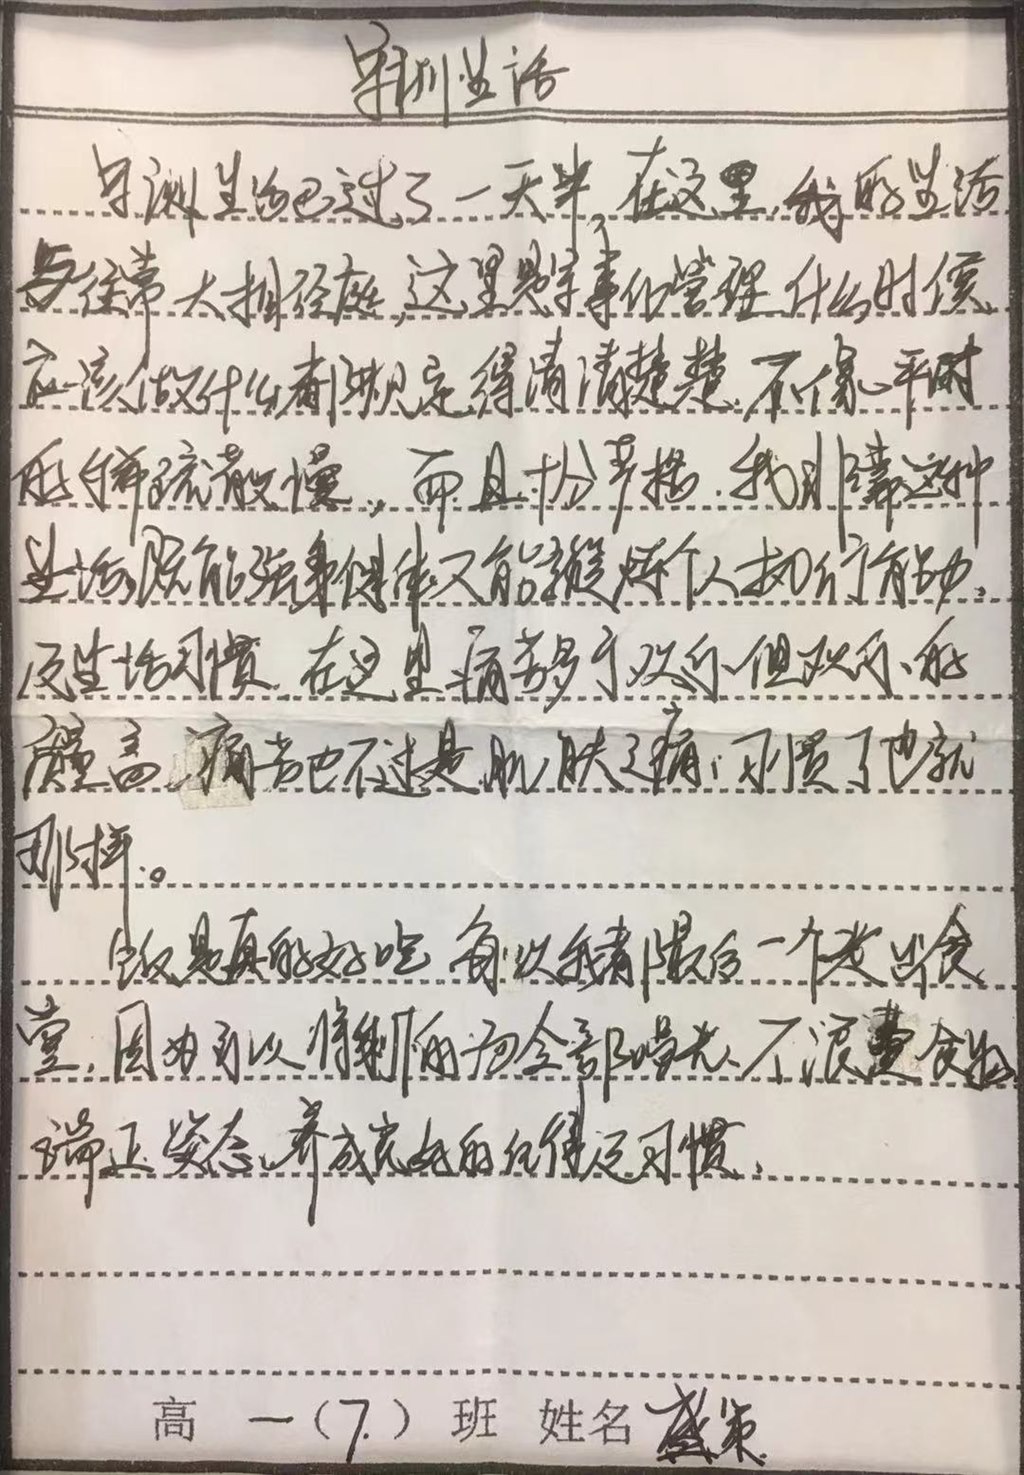 军训生活
军训生活已过了一天半,在这里,我的生活
与往常大相径庭,这里是军事化管理,什么时候
应该做什么都规定得清清楚楚,不像平时
的稀疏散慢,而且十分严格.我非靠这种
生活既能强身健体又能锻炼个人执行能力,
及生活习惯.在这里痛苦多于欢乐,但欢乐的
质量高,痛苦也不过是肌肤之痛,习惯了也就
那样。
饭是真的好吃 每次我都最后一个走出食
堂,因为可以将剩的汤全部喝光、不浪费食物
端正姿态,养成良好的任生习惯.
高一(7.)班 姓名 盛